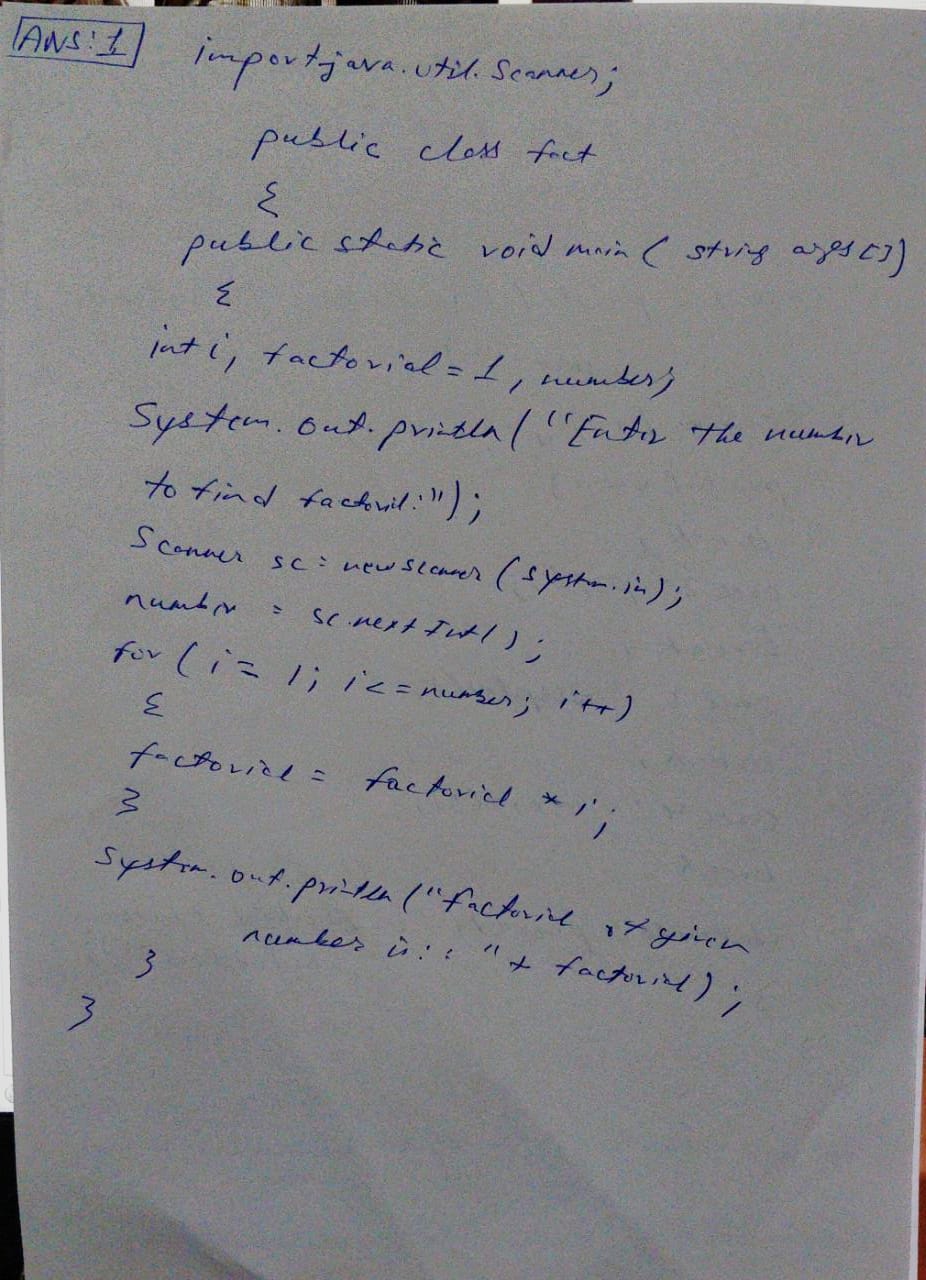 ANS: 1
import java.util.Scanner;
public class fact
{
public static void main ( string args [])
{
int i, factorial = 1, number;
System. out. println ( "Enter the number
to find factoril:");
Scanner sc = new scanner ( system.in);
number = sc.nextInt( );
for ( i = 1; i <= number; i++)
{
factorial = factorial * i;
}
System. out. println ("factorial of given
number is: : " + factorial );
}
}